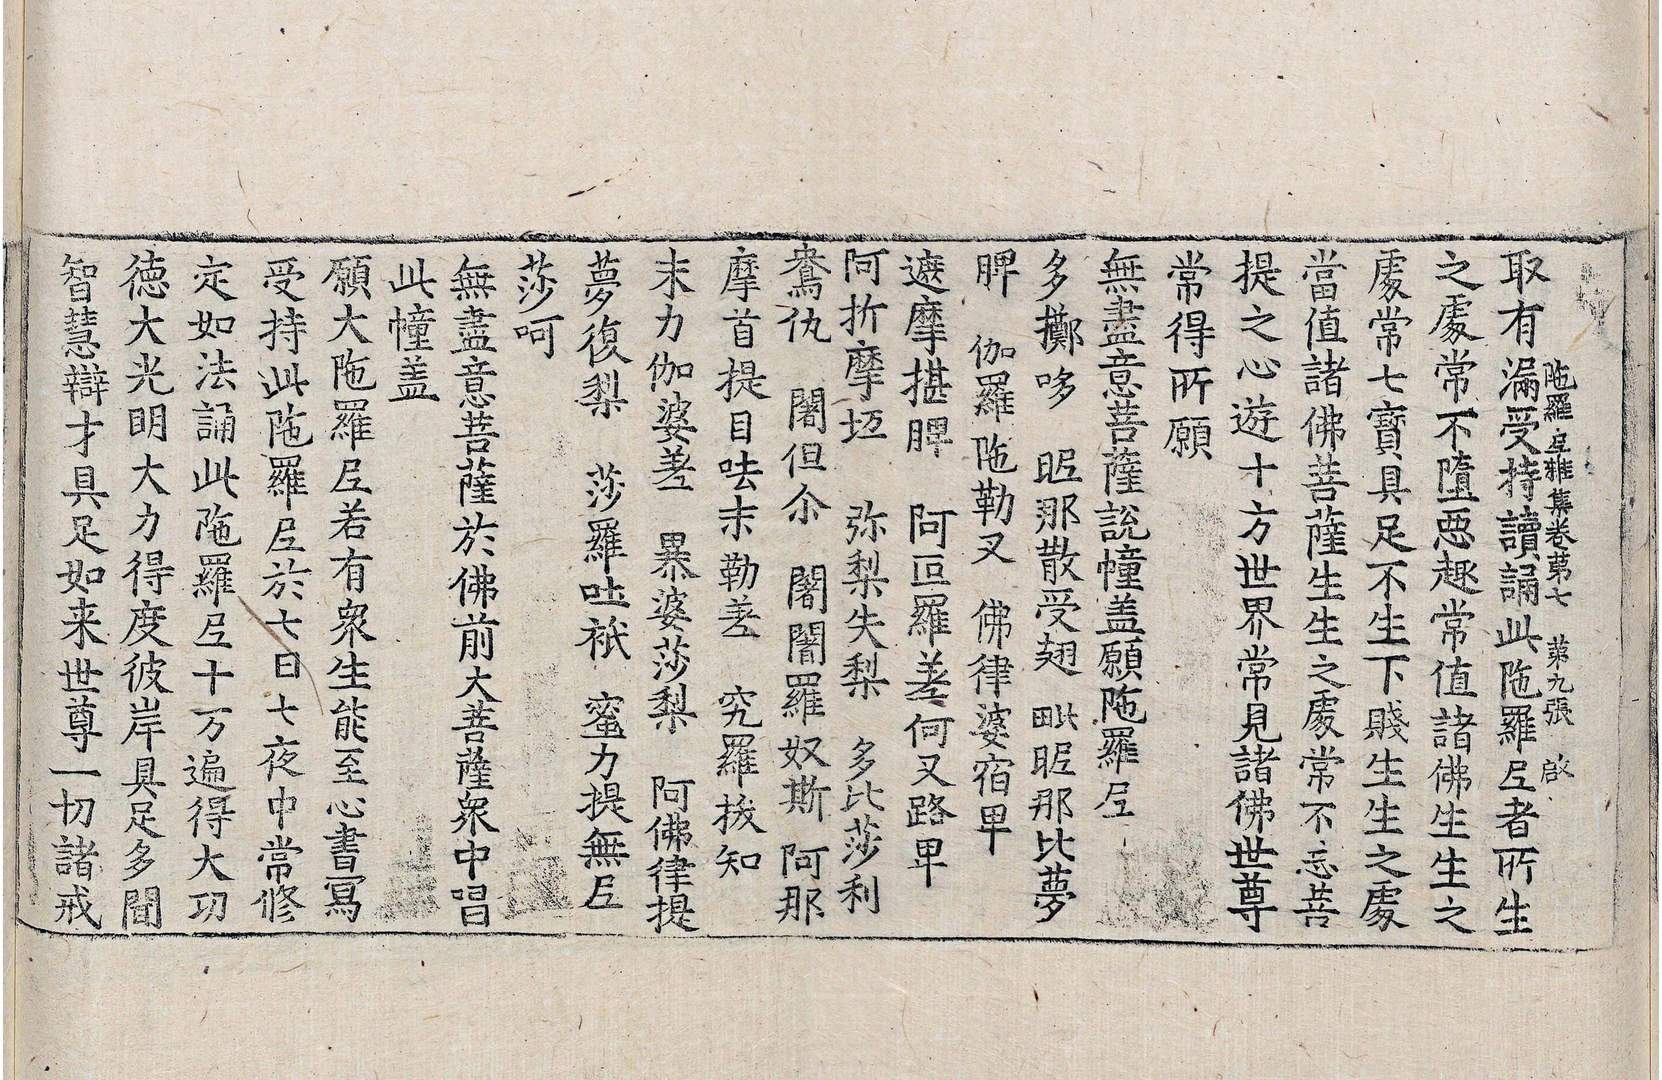 陁羅𡰱雜集卷第七 第九張 啟
取有漏受持讀誦此陁羅𡰱者所生
之處常不墮惡趣常值諸佛生生之
處常七寶具足不生下賤生生之處
當值諸佛菩薩生生之處常不忘菩
提之心遊十方世界常見諸佛世尊
常得所願
無盡意菩薩說幢盖願陁羅𡰱
多擲哆 昵那散受翅 毗昵那比夢
脾 伽羅陁勒叉 佛律婆宿畀
遮摩揕脾 阿叵羅差何叉路畀
阿折摩坘 弥梨失梨 多比莎利
鴦仇 闍但尒 闍闍羅奴斯 阿那
摩首提目呿末勒差 究羅拔知
末力伽婆差 暴婆莎梨 阿佛律提
夢復梨 莎羅吐祇 蜜力提無𡰱
莎呵
無盡意菩薩於佛前大菩薩衆中唱
此幢盖
願大陁羅𡰱若有衆生能至心書寫
受持此陁羅𡰱於七日七夜中常修
定如法誦此陁羅𡰱十万遍得大功
德大光明大力得度彼岸具足多聞
智慧辯才具足如来世尊一切諸戒